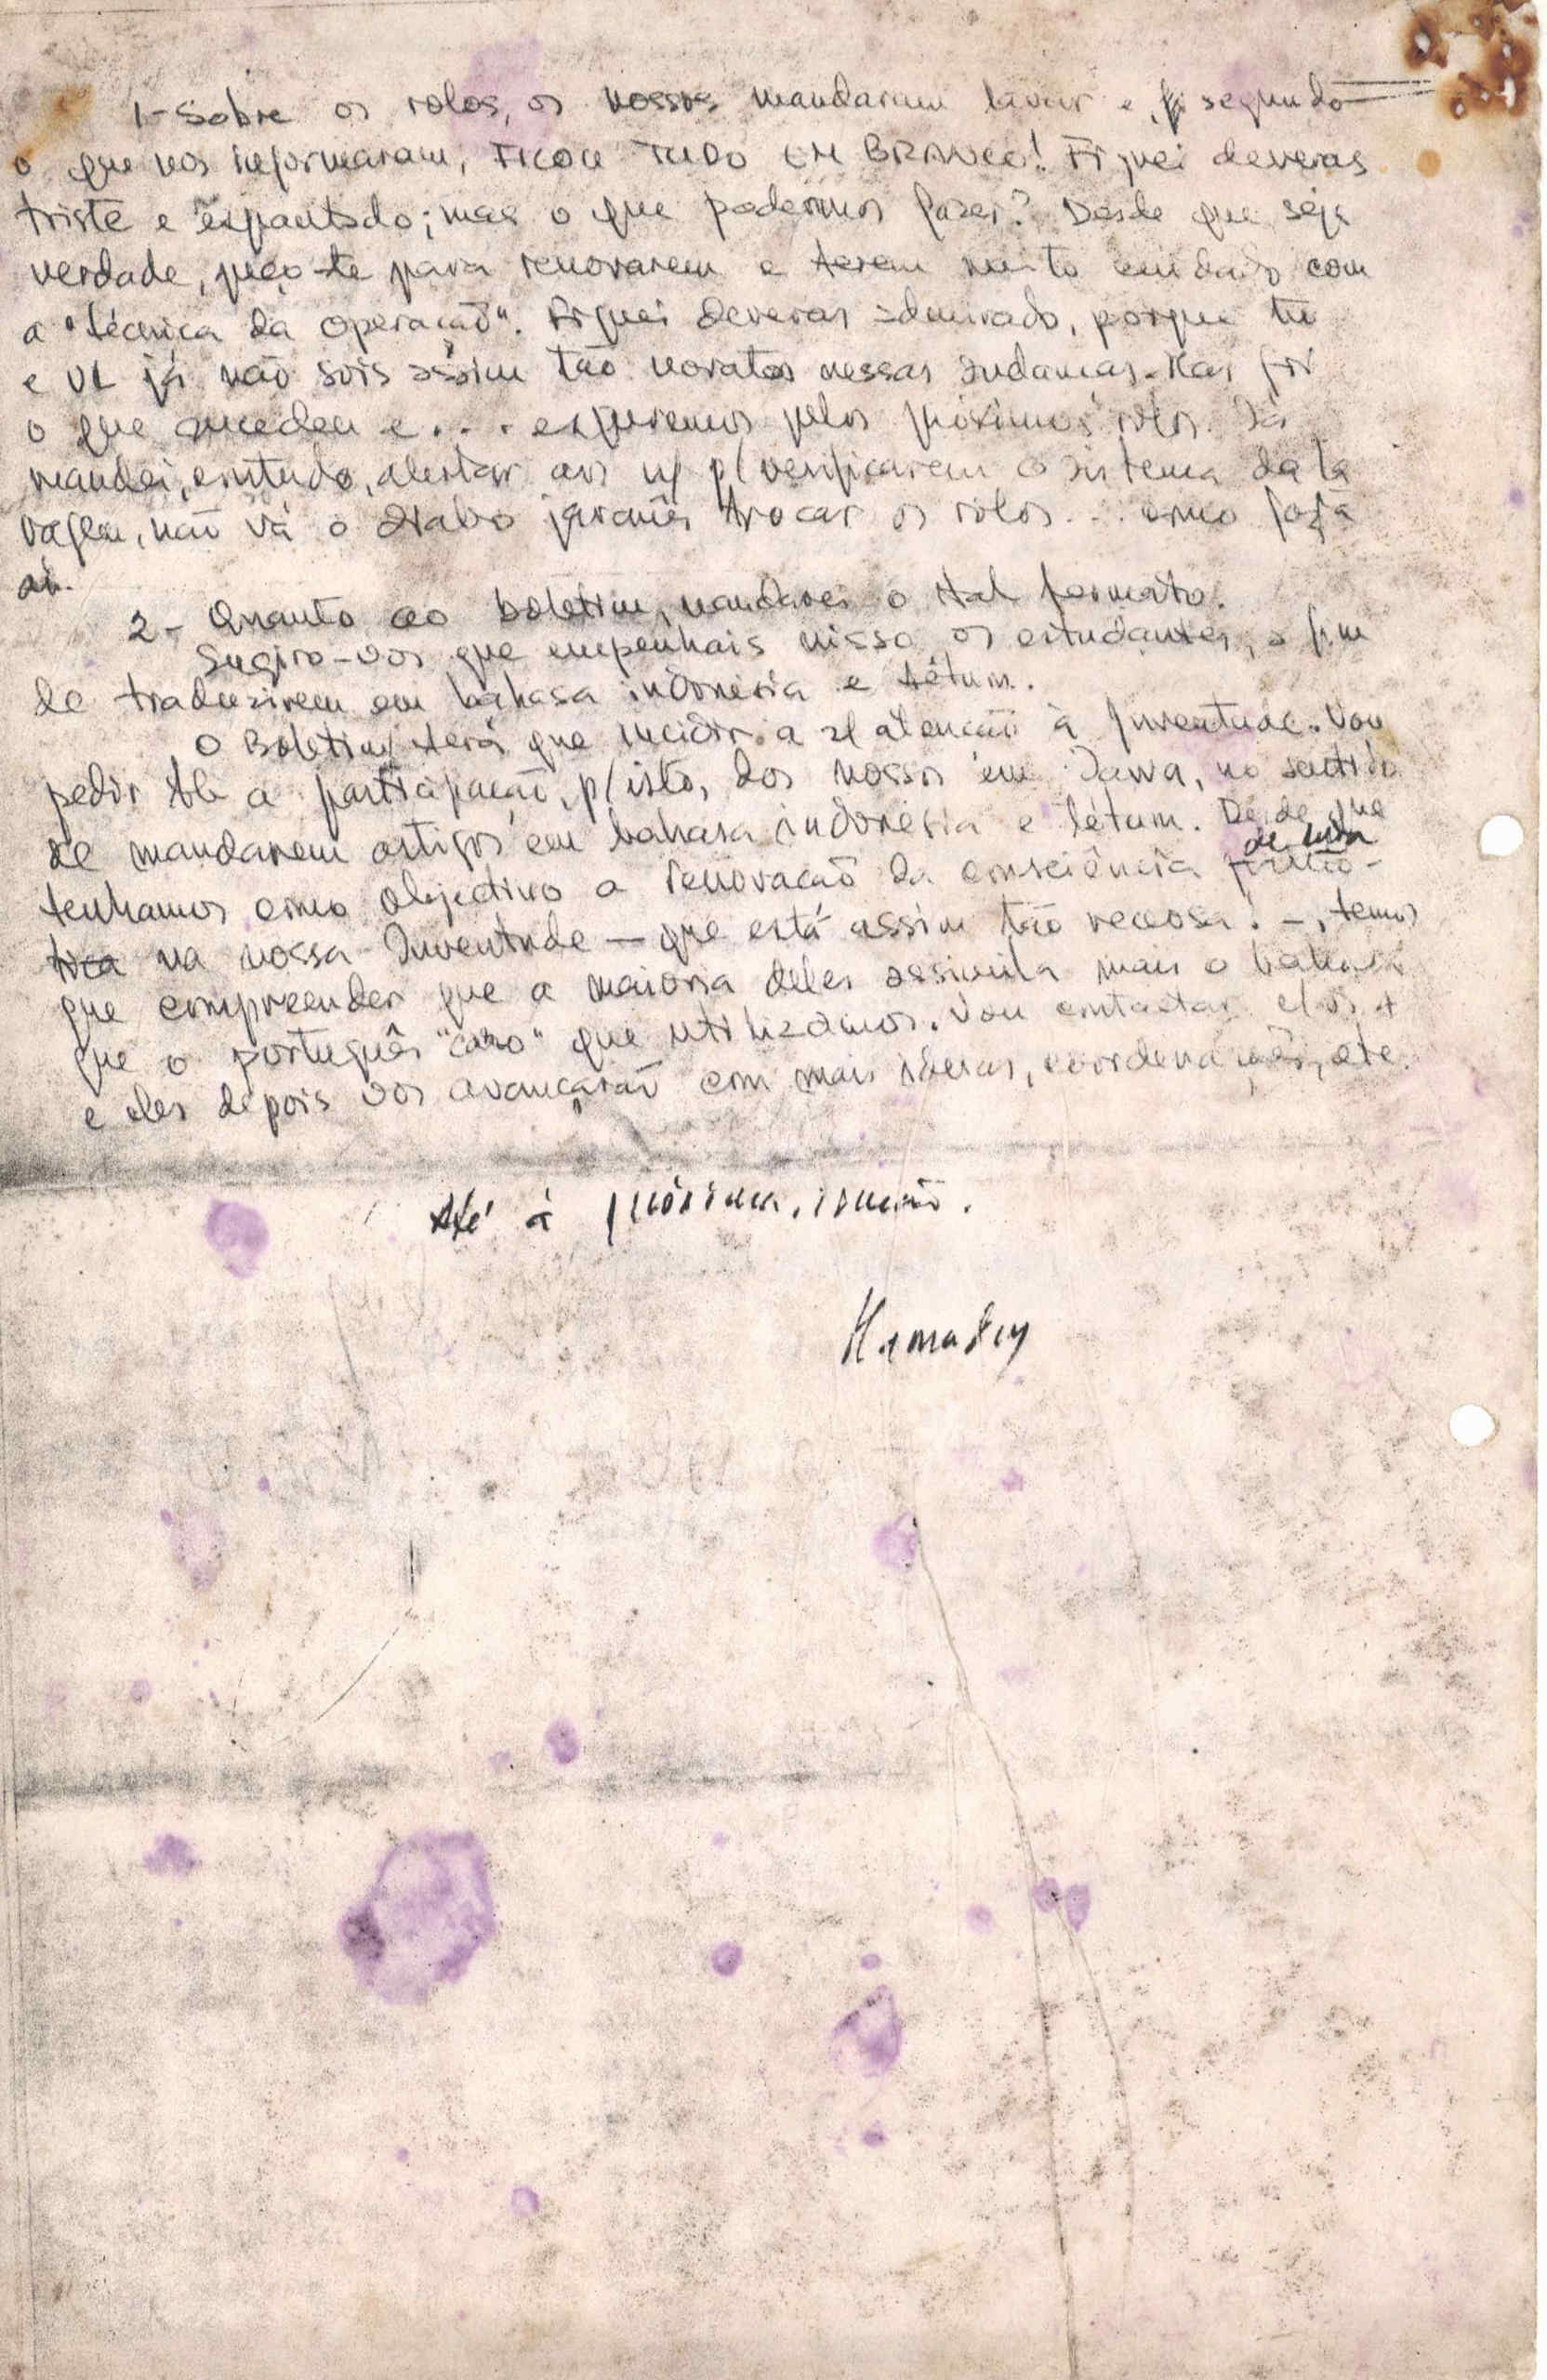 1- Sobre os rolos, os nossos mandaram lavar e, segundo
o que nos informaram, FICOU TUDO EM BRANCO! Fiquei deveras
triste e espantado; mas o que podermos fazer? Desde que seja
verdade, peço-te para renovarem e terem muito cuidado com
a "técnica da operação". Fiquei deveras admirado, porque tu
e VL já não sois assim tão novatos nessas andanças. Mas foi
o que sucedeu e... esperemos pelos próximos rolos. Já
mandei, contudo, alertar aos n/ p/ verificarem o sistema da la
vagem, não vá o diabo javanês trocar os rolos... como
aí.
2- Quanto ao boletim, mandarei o tal formato.
Sugiro-vos que empenhais nisso os estudantes, a fim
de traduzirem em bahasa indonésia e tétum.
O Boletim terá que incidir a s/ atenção à Juventude. Vou
pedir tb a participação, p/ isto, dos nossos em Jawa, no sentido
de mandarem artigos em bahasa indonésia e tétum. Desde que
tenhamos como objectivo a renovação da consciência de luta
na nossa Juventude — que está assim tão receosa! —, temos
que compreender que a maioria deles assimila mais o bahasa
que o português "caro" que utilizamos. Vou contactar c/ os +
e eles depois vos avançarão com mais ideias, coordenações, etc.
Até à próxima, irmão.